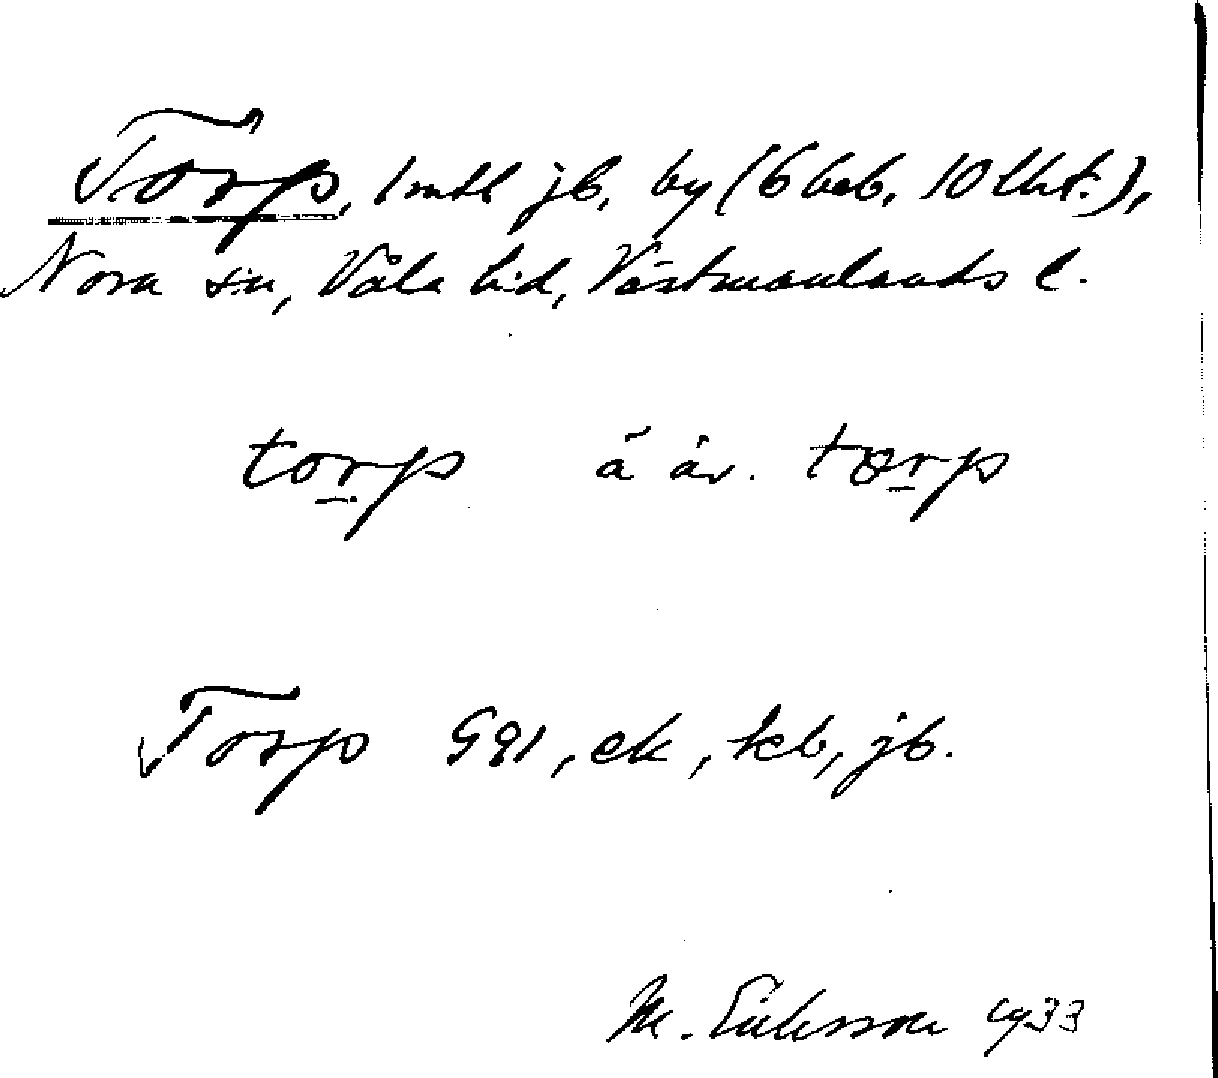 Torp, 1 mtl jb, by (6 beb, 10 lht.),
Nora sn, Våla hd, Västmanlands l.
torp ä äv. tœrp
Torp G91, ek, kb, jb.
M. Eriksson 1933